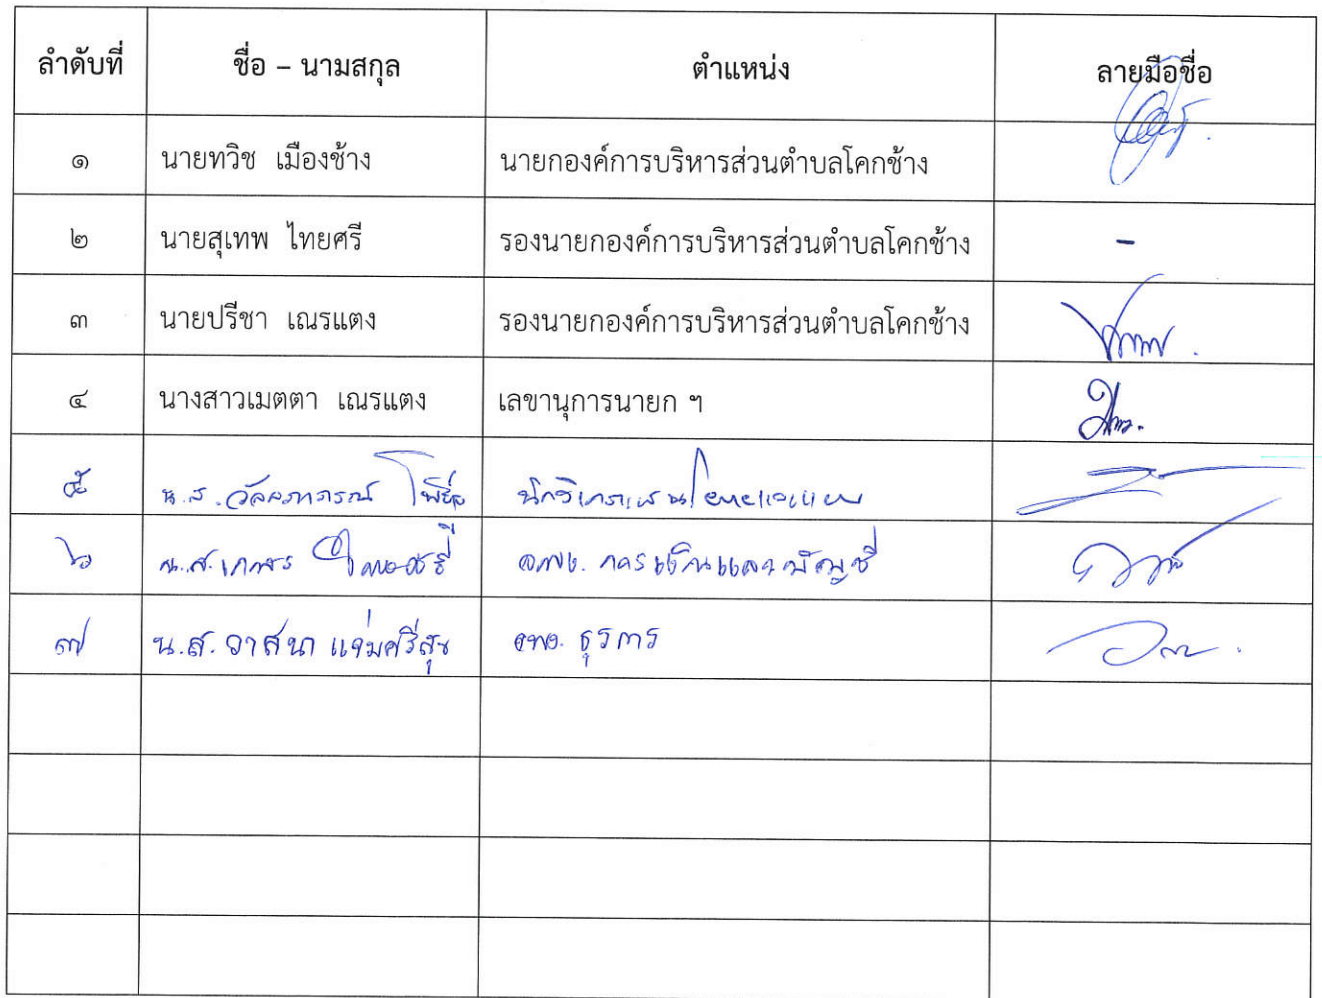 ลำดับที่ ชื่อ – นามสกุล ตำแหน่ง ลายมือชื่อ
๑ นายทวิช เมืองช้าง นายกองค์การบริหารส่วนตำบลโคกช้าง
๒ นายสุเทพ ไทยศรี รองนายกองค์การบริหารส่วนตำบลโคกช้าง -
๓ นายปรีชา เณรแตง รองนายกองค์การบริหารส่วนตำบลโคกช้าง
๔ นางสาวเมตตา เณรแตง เลขานุการนายก ฯ
๕ น.ส.วัลลภาภรณ์
๖ น.ส. จพง. การเงินและบัญชี
๗ น.ส. วาสนา แจ่มศรีสุข จพง. ธุรการ